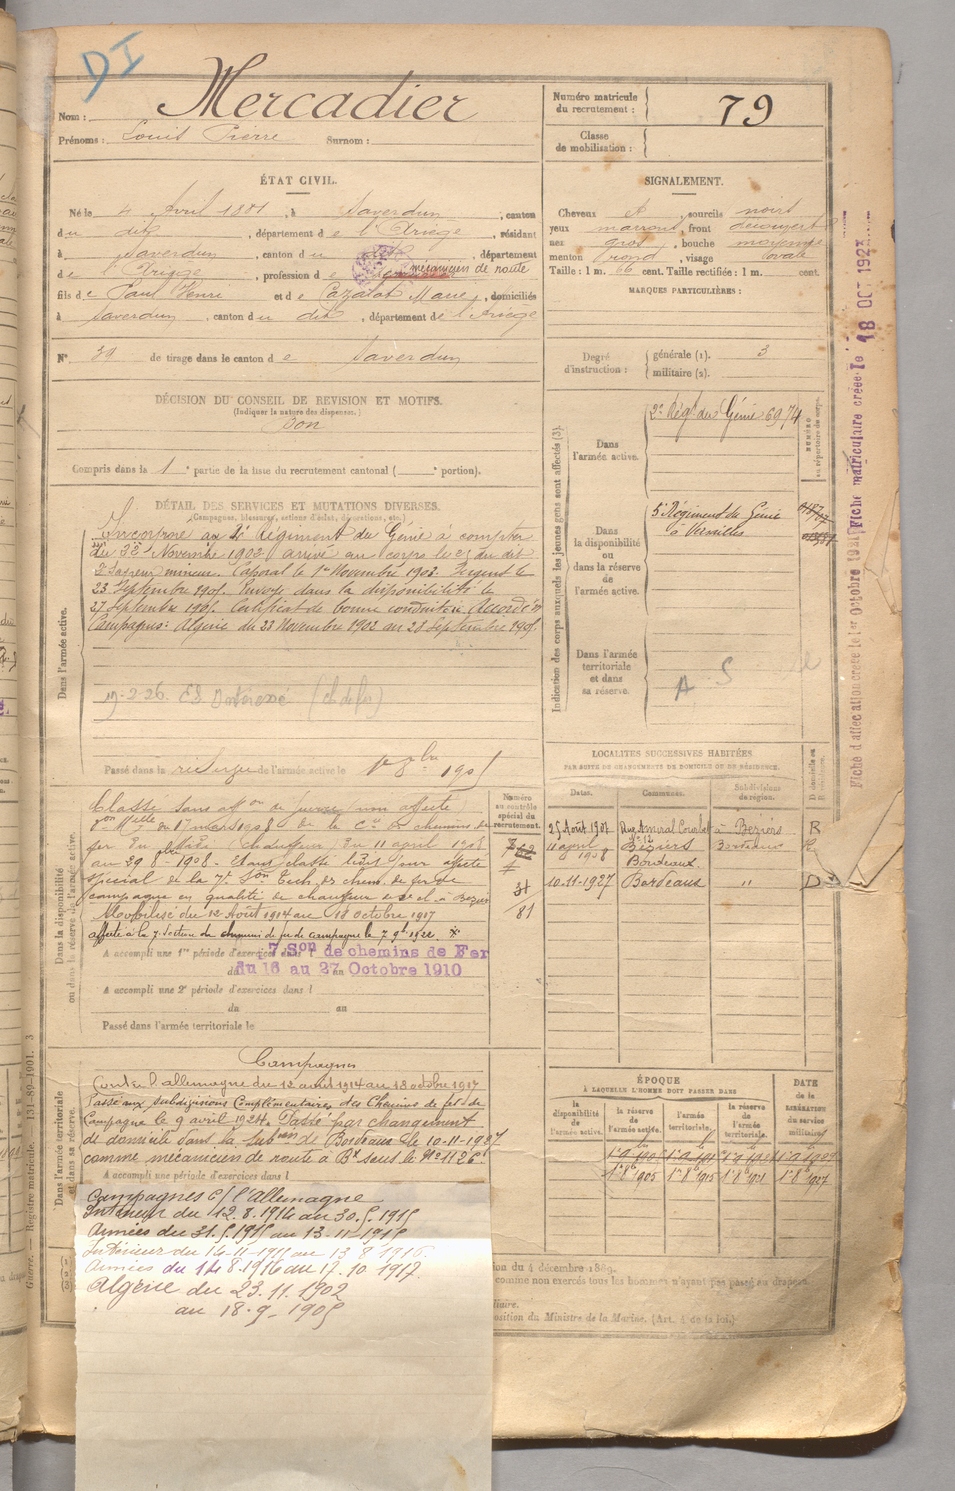 DI
Nom : Mercadier
Prénoms : Louis Pierre Surnom :
Numéro matricule du recrutement : 79
Classe de mobilisation :
ÉTAT CIVIL.
Né le 4 Avril 1881, à Saverdun, canton
du dit, département de l'Ariège, résidant
à Saverdun, canton du dit, département
de Ariège, profession de mécanicien de route
fils de Paul Henri et de Cazalot Marie, domiciliés
à Saverdun, canton du dit, département de l'Ariège
N° 39 de tirage dans le canton de Saverdun
SIGNALEMENT.
Cheveux et, sourcils noirs
yeux marrons, front découvert
nez gros, bouche moyenne
menton rond, visage ovale
Taille : 1 m. 66 cent. Taille rectifiée : 1 m. cent.
MARQUES PARTICULIÈRES :
Degré d'instruction : générale (1). 3
militaire (2).
DÉCISION DU CONSEIL DE REVISION ET MOTIFS.
(Indiquer la nature des dispenses.)
Bon
Compris dans la 1e partie de la liste du recrutement cantonal ( e portion).
DÉTAIL DES SERVICES ET MUTATIONS DIVERSES.
(Campagnes, blessures, actions d'éclat, décorations, etc.)
Dans l'armée active.
Incorporé au 2e Régiment du Génie à compter
du 22 Novembre 1902 arrivé au corps le 23 du dit
2e Sapeur mineur. Caporal le 1er Novembre 1903. Sergent le
23 Septembre 1905. Envoyé dans la disponibilité le
27 Septembre 1905. Certificat de bonne conduite Accordé
Campagnes : Algérie du 23 Novembre 1902 au 28 Septembre 1905.
(ch de fer)
Passé dans la réserve de l'armée active le 1er 8bre 1905
Indication des corps auxquels les jeunes gens sont affectés (3).
NUMÉRO au répertoire du corps.
Dans l'armée active.
2e Régt du Génie 6974
Dans la disponibilité ou dans la réserve de l'armée active.
5e Régiment du Génie
à Versailles
Dans l'armée territoriale et dans sa réserve.
A S
LOCALITÉS SUCCESSIVES HABITÉES
PAR SUITE DE CHANGEMENTS DE DOMICILE OU DE RÉSIDENCE.
Dates. Communes. Subdivisions de région. D domicile ou R résidence.
25 Août 1907 Rue Amiral à Béziers R
11 avril 1908 Béziers Bordeaux
Bordeaux
10-11-1927 Bordeaux " D
Dans la disponibilité ou dans la réserve de l'armée active.
Numéro au contrôle spécial du recrutement.
Classé non affecté
du 17 mars 1908 de la Cie des chemins de
fer du Midi (chauffeur) du 11 avril 1908
au 29 8bre 1908. Etant classé affecté
spécial de la 7e Son Tech. de chem. de fer de
campagne en qualité de chauffeur à Béziers
Mobilisé du 12 Août 1914 au 18 octobre 1917
affecté à la 7e Section de chemins de fer de campagne le 7 9bre 1922.
31
81
A accompli une 1re période d'exercices dans l 7e Son de chemins de Fer
du 16 au 27 Octobre 1910
A accompli une 2e période d'exercices dans l
du au
Passé dans l'armée territoriale le
Dans l'armée territoriale et dans sa réserve.
Campagnes
Contre l'allemagne du 12 août 1914 au 18 octobre 1917
Passé aux subdivisions Complémentaires des Chemins de fer de
Campagne le 9 avril 1924. Passé par changement
de domicile dans la Subon de Bordeaux le 10-11-1927
comme mécanicien de route à Bx sous le N° 1126.
A accompli une période d'exercices dans l
Campagnes c/ l'Allemagne
Intérieur du 12.8.1914 au 30.5.1915
Armées du 31.5.1915 au 13-11-1915
Intérieur du 14-11-1915 au 13 8 1916.
Armées du 14 8.1916 au 17.10 1917.
Algérie du 23.11.1902
au 18.9-1905
ÉPOQUE
À LAQUELLE L'HOMME DOIT PASSER DANS
la disponibilité de l'armée active. la réserve de l'armée active. l'armée territoriale. la réserve de l'armée territoriale.
DATE de la LIBÉRATION du service militaire.
1er 8bre 1905 1er 8bre 1915 1er 8bre 1921 1er 8bre 1927
ion du 4 décembre 1889.
comme non exercés tous les hommes n'ayant pas passé au drapeau
iliaire.
osition du Ministre de la Marine. (Art. 4 de la loi.)
Guerre. — Registre matricule. 131-89-1901. 3
Fiche d'affectation créée le 1er Octobre 1931
Fiche matriculaire créée le 18 OCT 1927